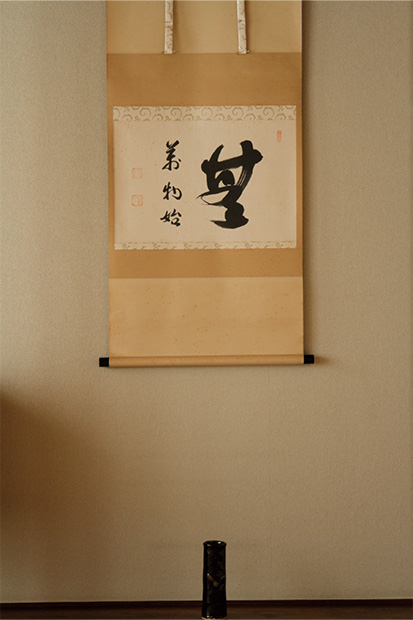 無
萬物始